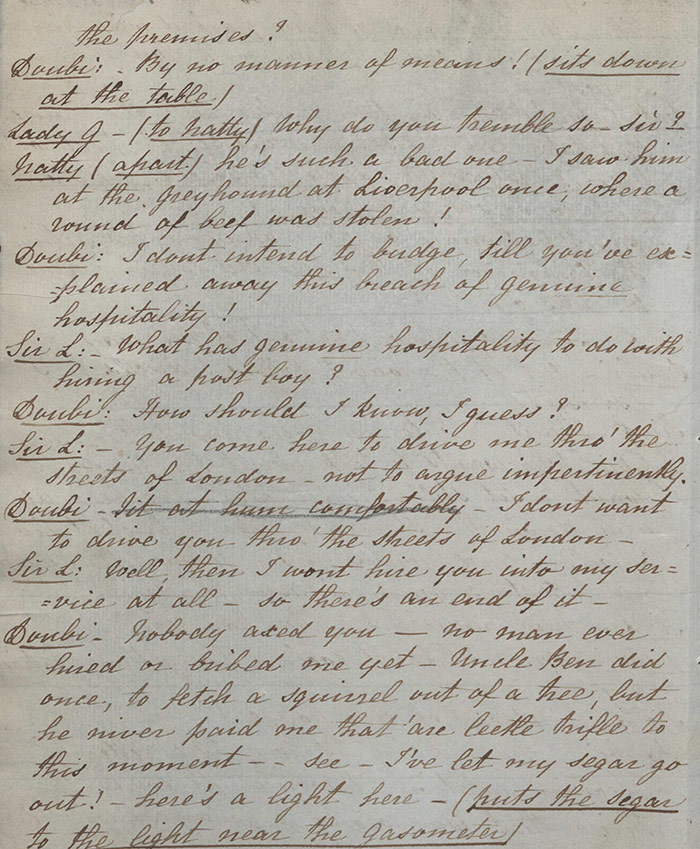 the premises?
Doubi: - By no manner of means! (sits down
at the table)
Lady G - (to Natty) Why do you tremble so - sir?
Natty (apart) he's such a bad one - I saw him
at the greyhound at Liverpool once, where a
round of beef was stolen!
Doubi: I dont intend to budge, till you've ex=
=plained away this breach of genuine
hospitality!
Sir L: - What has genuine hospitality to do with
hiring a post boy?
Doubi: How should I know, I guess?
Sir L: - You come here to drive me thro' the
streets of London - not to argue impertinently.
Doubi - Sit at hum comfortably - I dont want
to drive you thro' the streets of London -
Sir L: Well, then I wont hire you into my ser=
=vice at all - so there's an end of it -
Doubi - Nobody axed you - no man ever
hired or bribed me yet - Uncle Ben did
once, to fetch a squirrel out of a tree, but
he niver paid me that 'are leetle trifle to
this moment - - see - I've let my segar go
out! - here's a light here - (puts the segar
to the light near the Gasometer)